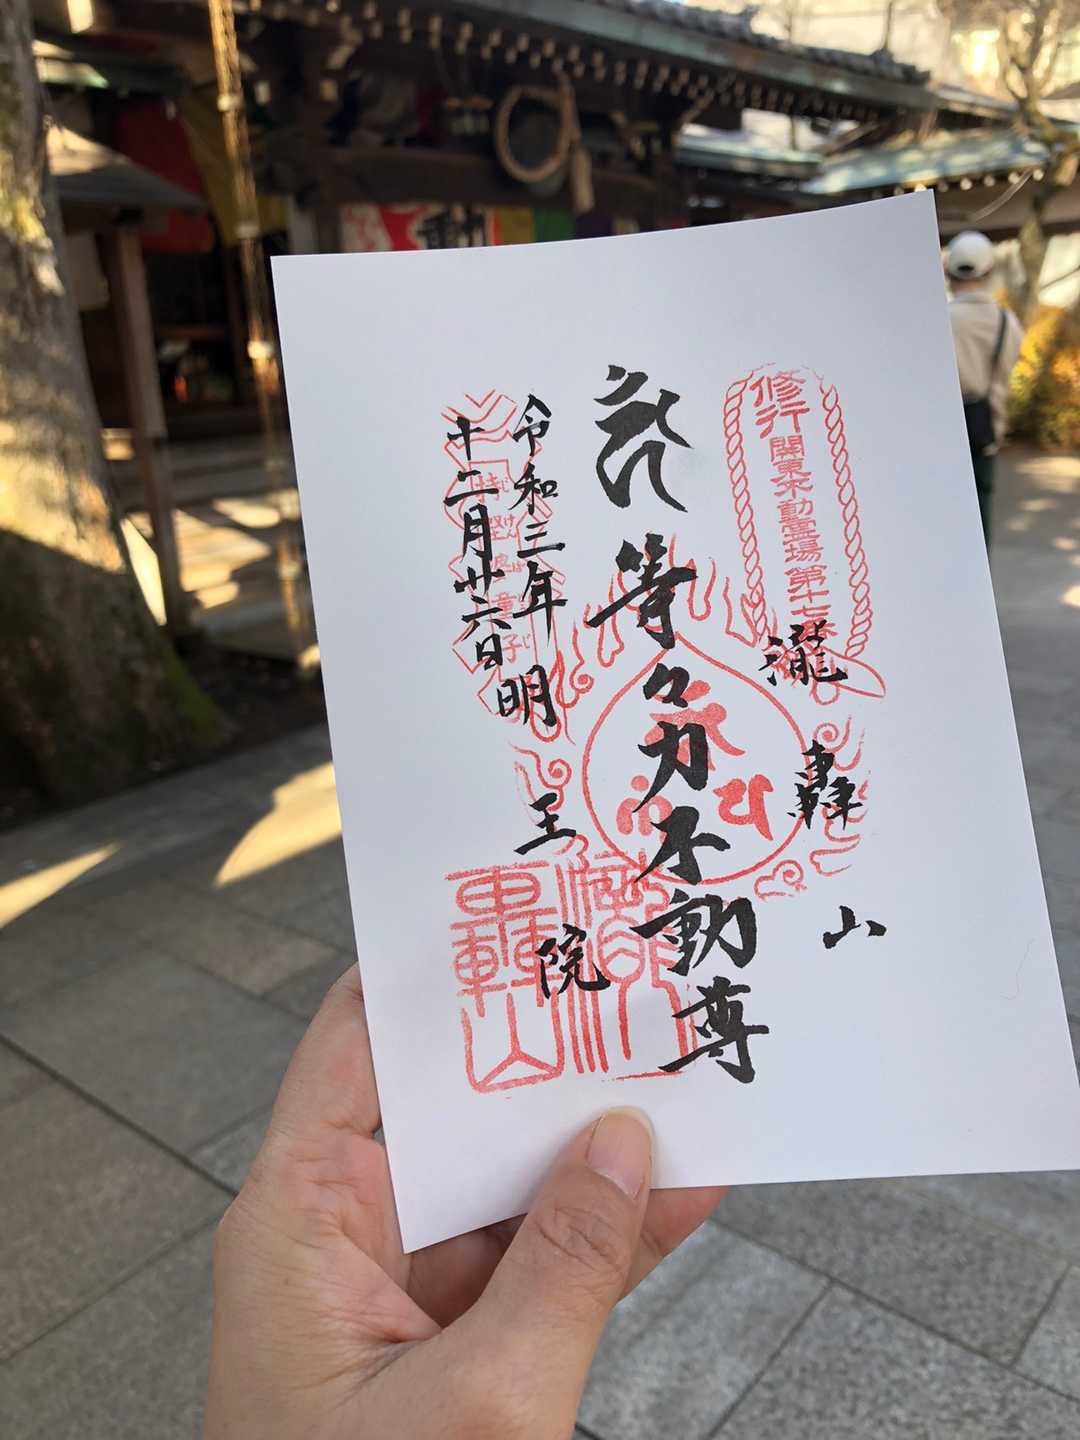 修行
関東不動霊場第十七番
瀧轟山
等々力不動尊
令和三年
十二月廿六日
明王院